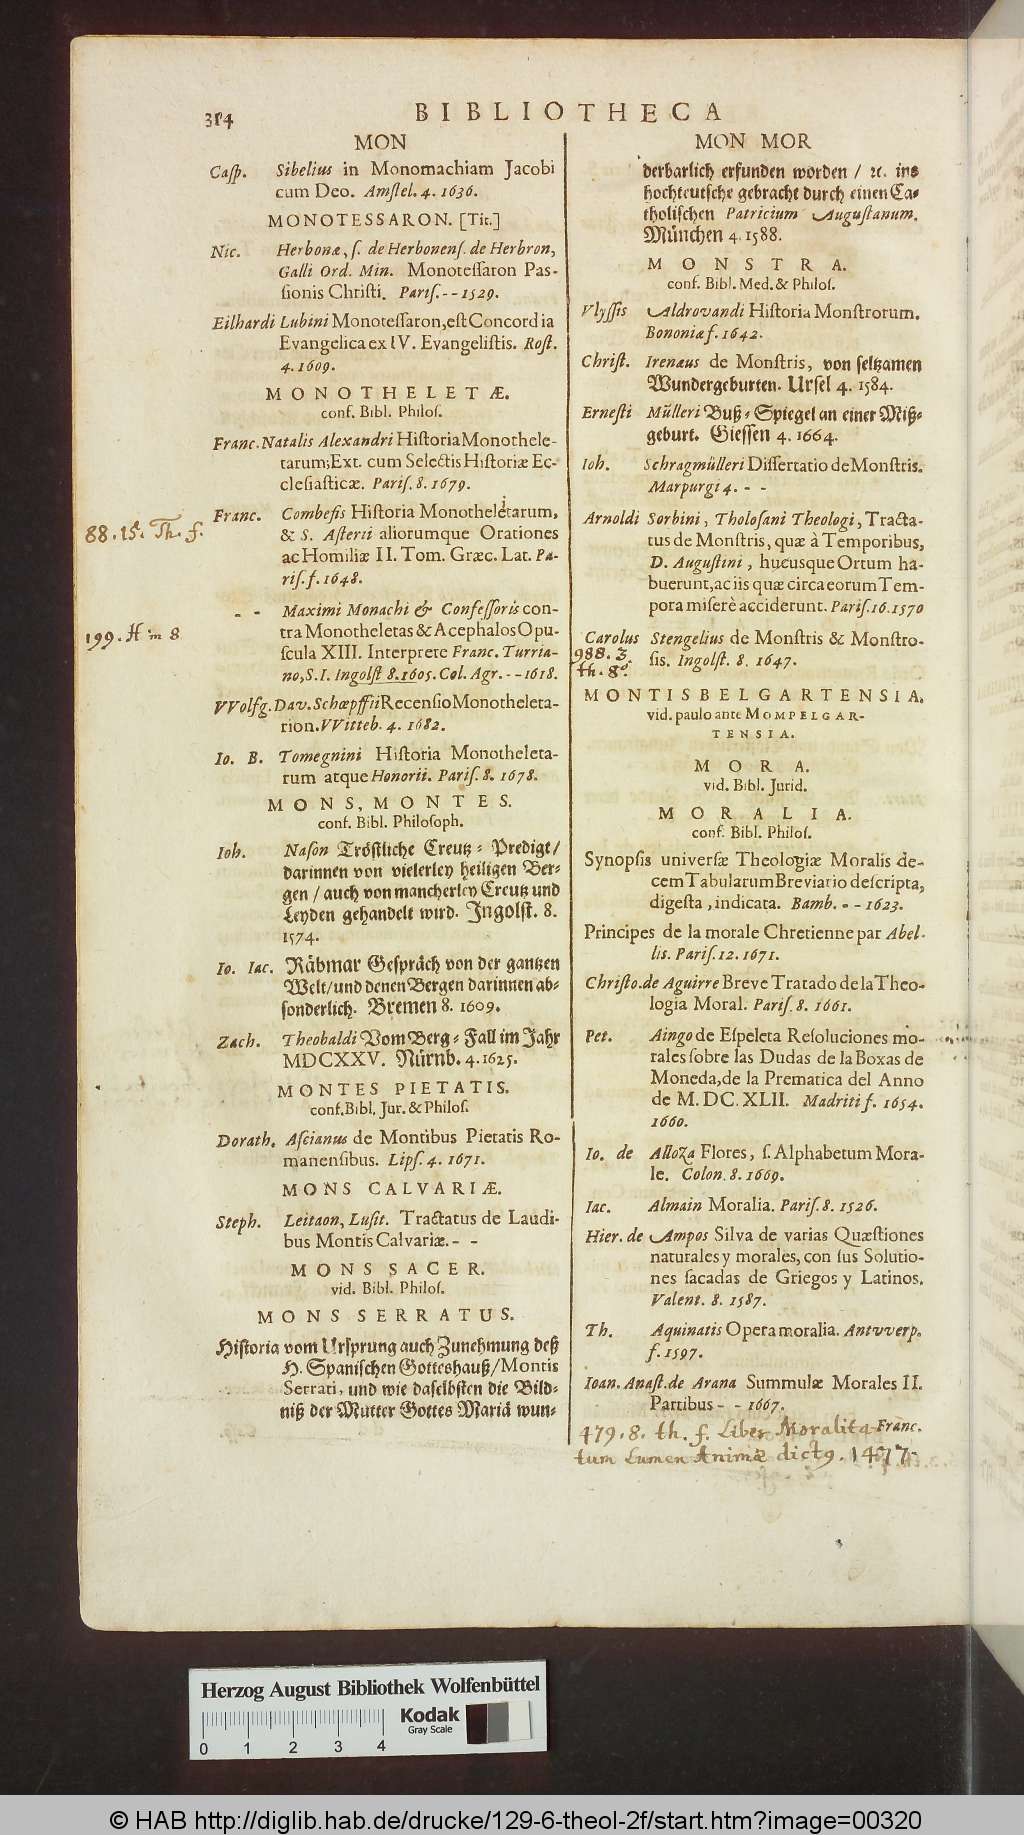 314
BIBLIOTHECA
MON
Casp. Sibelius in Monomachiam Jacobi
cum Deo. Amstel. 4. 1636.
MONOTESSARON. [Tit.]
Nic. Herbonæ, ſ. de Herbonenſ. de Herbron,
Galli Ord. Min. Monoteſſaron Paſ-
ſionis Chriſti. Pariſ. - - 1529.
Eilhardi Lubini Monoteſſaron, eſt Concordia
Evangelica ex IV. Evangeliſtis. Roſt.
4. 1609.
MONOTHELETÆ.
conf. Bibl. Philoſ.
Franc. Natalis Alexandri Hiſtoria Monothele-
tarum; Ext. cum Selectis Hiſtoriæ Ec-
cleſiaſticæ. Pariſ. 8. 1679.
Franc. Combefis Hiſtoria Monotheletarum,
88. 15. Th. f.
& S. Aſterii aliorumque Orationes
ac Homiliæ II. Tom. Græc. Lat. Pa-
riſ. f. 1648.
- - Maximi Monachi & Confeſſoris con-
199. H in 8
tra Monotheletas & Acephalos Opu-
ſcula XIII. Interprete Franc. Turria-
no, S.I. Ingolſt 8. 1605. Col. Agr. - - 1618.
VVolfg. Dav. Schœpffii Recenſio Monotheleta-
rion. VVitteb. 4. 1682.
Io. B. Tomegnini Hiſtoria Monotheleta-
rum atque Honorii. Pariſ. 8. 1678.
MONS, MONTES.
conf. Bibl. Philoſoph.
Ioh. Nason Tröſtliche Creutz-Predigt/
darinnen von vielerley heiligen Ber-
gen / auch von mancherley Creutz und
Leyden gehandelt wird. Ingolſt. 8.
1574.
Io. Iac. Räbmar Geſpräch von der gantzen
Welt/ und denen Bergen darinnen ab-
ſonderlich. Bremen 8. 1609.
Zach. Theobaldi Vom Berg-Fall im Jahr
MDCXXV. Nürnb. 4. 1625.
MONTES PIETATIS.
conf. Bibl. Jur. & Philoſ.
Dorath. Aſcianus de Montibus Pietatis Ro-
manenſibus. Lipſ. 4. 1671.
MONS CALVARIÆ.
Steph. Leitaon, Luſit. Tractatus de Laudi-
bus Montis Calvariæ. - -
MONS SACER.
vid. Bibl. Philoſ.
MONS SERRATUS.
Hiſtoria vom Urſprung auch Zunehmung deß
H. Spaniſchen Gotteshauß/ Montis
Serrati, und wie daſelbſten die Bild-
niß der Mutter Gottes Mariä wun-
MON MOR
derbarlich erfunden worden / ꝛc. ins
hochteutſche gebracht durch einen Ca-
tholiſchen Patricium Auguſtanum.
München 4. 1588.
MONSTRA.
conf. Bibl. Med. & Philoſ.
Vlyſſis Aldrovandi Hiſtoria Monſtrorum.
Bononiæ f. 1642.
Chriſt. Irenæus de Monſtris, von ſeltzamen
Wundergeburten. Urſel 4. 1584.
Erneſti Mülleri Buß-Spiegel an einer Miß-
geburt. Gieſſen 4. 1664.
Ioh. Schragmülleri Diſſertatio de Monſtris.
Marpurgi 4. - -
Arnoldi Sorbini, Tholoſani Theologi, Tracta-
tus de Monſtris, quæ à Temporibus,
D. Auguſtini, hucusque Ortum ha-
buerunt, ac iis quæ circa eorum Tem-
pora miſerè acciderunt. Pariſ. 16. 1570
Carolus Stengelius de Monſtris & Monſtro-
988. 3.
ſis. Ingolſt. 8. 1647.
th. 8º.
MONTISBELGARTENSIA.
vid. paulo ante MOMPELGAR-
TENSIA.
MORA.
vid. Bibl. Jurid.
MORALIA.
conf. Bibl. Philoſ.
Synopſis univerſæ Theologiæ Moralis de-
cem Tabularum Breviario deſcripta,
digeſta, indicata. Bamb. - - 1623.
Principes de la morale Chretienne par Abel-
lis. Pariſ. 12. 1671.
Chriſto. de Aguirre Breve Tratado de la Theo-
logia Moral. Pariſ. 8. 1661.
Pet. Aingo de Eſpeleta Reſoluciones mo-
rales ſobre las Dudas de la Boxas de
Moneda, de la Prematica del Anno
de M. DC. XLII. Madriti f. 1654.
1660.
Io. de Alloza Flores, ſ. Alphabetum Mora-
le. Colon. 8. 1669.
Iac. Almain Moralia. Pariſ. 8. 1526.
Hier. de Ampos Silva de varias Quæſtiones
naturales y morales, con ſus Solutio-
nes ſacadas de Griegos y Latinos.
Valent. 8. 1587.
Th. Aquinatis Opera moralia. Antvverp.
f. 1597.
Ioan. Anaſt. de Arana Summulæ Morales II.
Partibus - - 1667.
Franc.
479. 8. th. f. Liber Moralita-
tum Lumen Animæ dictꝰ. 1477.
Herzog August Bibliothek Wolfenbüttel
Kodak
Gray Scale
0 1 2 3 4
© HAB http://diglib.hab.de/drucke/129-6-theol-2f/start.htm?image=00320